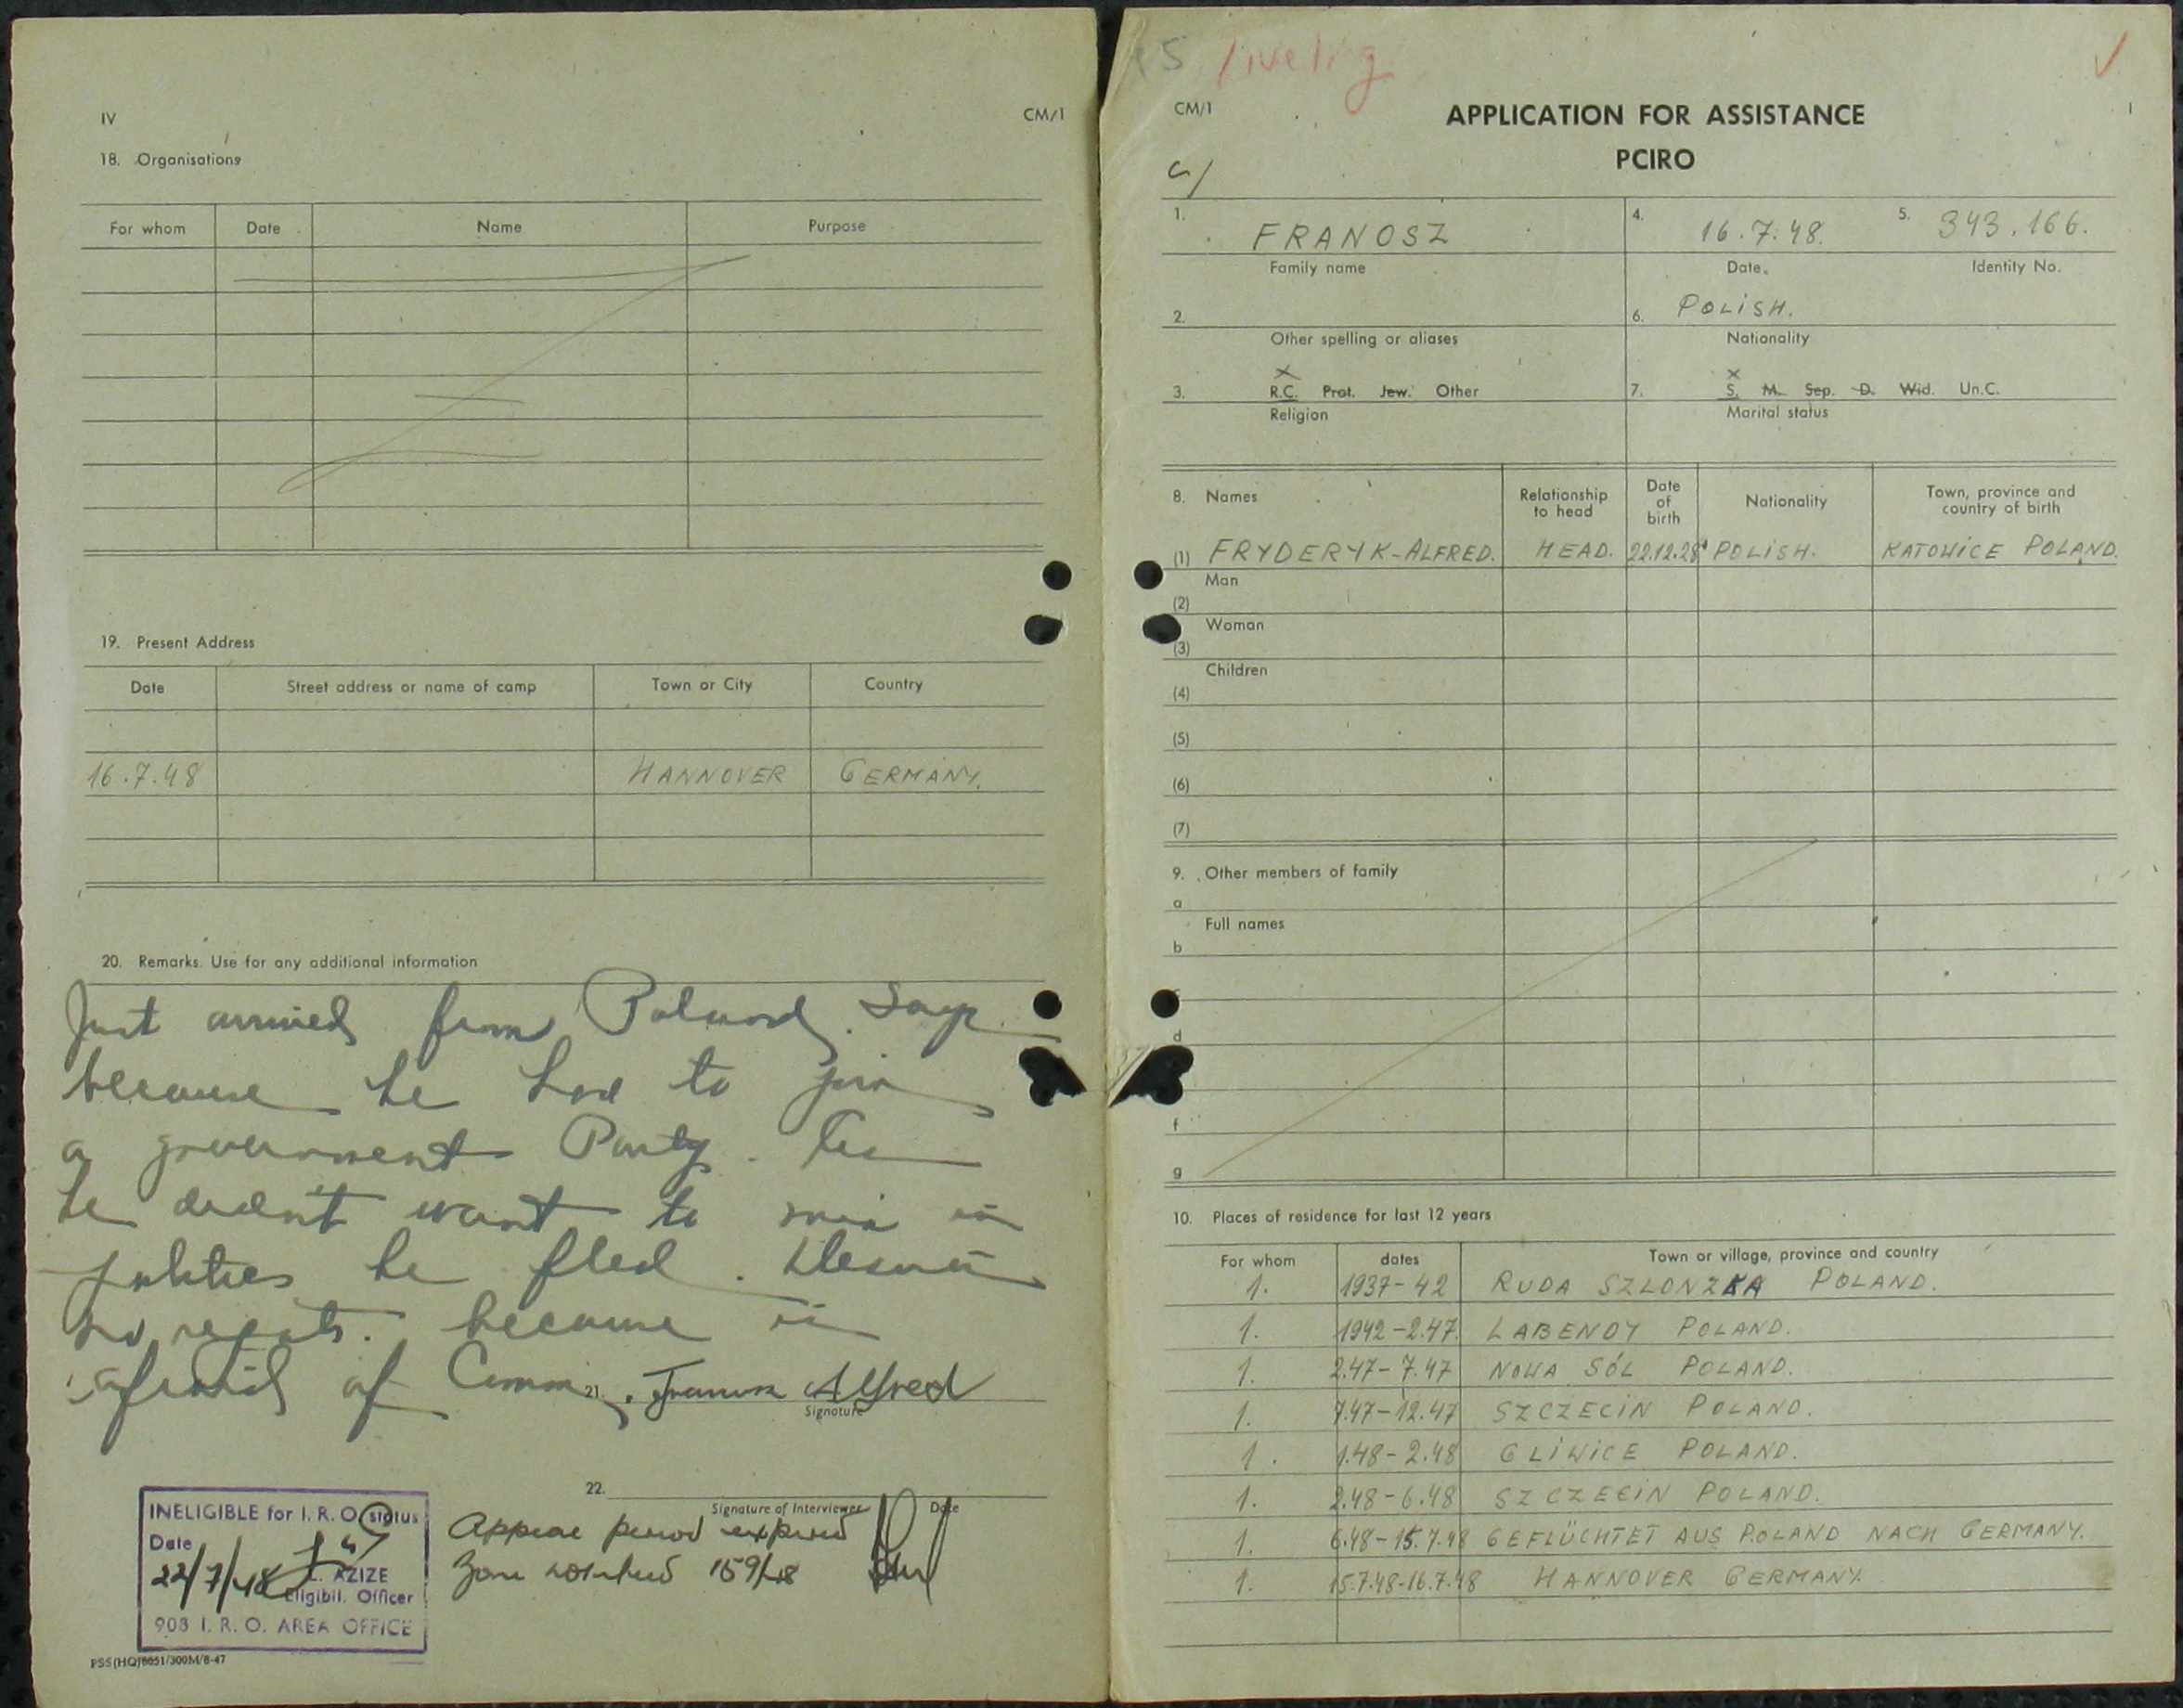 IV
CM/1
18. Organisations
For whom Date Name Purpose
19. Present Address
Date Street address or name of camp Town or City Country
16.7.48 HANNOVER GERMANY.
20. Remarks. Use for any additional information
Just arrived from Poland. Says
because he had to join
a government Party. As
he didn't want to mix in
politics he fled. Desires
no repatr. because is
afraid of Comm.
21. Alfred
Signature
22.
Signature of Interviewer Date
INELIGIBLE for I. R. O. status
Date
22/7/48 AZIZE
Eligibil. Officer
903 I. R. O. AREA OFFICE
Appeal period expired
Zone notified 15 9/48
PSS(HQ)6051/300M/8-47
5
CM/1
APPLICATION FOR ASSISTANCE
PCIRO
1. FRANOSZ
Family name
4. 16.7.48.
Date.
5. 343.166.
Identity No.
2.
Other spelling or aliases
6. POLISH.
Nationality
3. R.C. Prot. Jew. Other
Religion
7. S. M. Sep. D. Wid. Un.C.
Marital status
8. Names Relationship to head Date of birth Nationality Town, province and country of birth
(1) FRYDERYK-ALFRED. HEAD. 22.12.28 POLISH. KATOWICE POLAND.
Man
(2)
Woman
(3)
Children
(4)
(5)
(6)
(7)
9. Other members of family
a
Full names
b
c
d
f
g
10. Places of residence for last 12 years
For whom dates Town or village, province and country
1. 1937-42 RUDA SZLONZKA POLAND.
1. 1942-2.47. LABENDY POLAND.
1. 2.47-7.47 NOWA SÓL POLAND.
1. 7.47-12.47 SZCZECIN POLAND.
1. 1.48-2.48 GLIWICE POLAND.
1. 2.48-6.48 SZCZECIN POLAND.
1. 6.48-15.7.48 GEFLÜCHTET AUS POLAND NACH GERMANY.
1. 15.7.48-16.7.48 HANNOVER GERMANY.